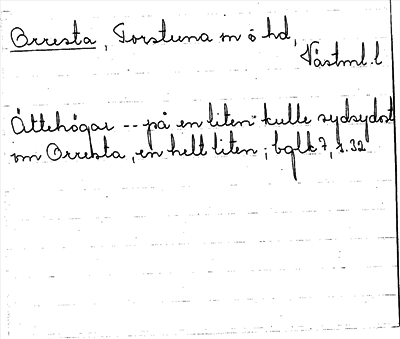 Orresta, Torstuna m ö hd,
Västml. l
Ättehögar -- på en liten kulle sydsydost
om Orresta, en helt liten; bglk 7, s. 32